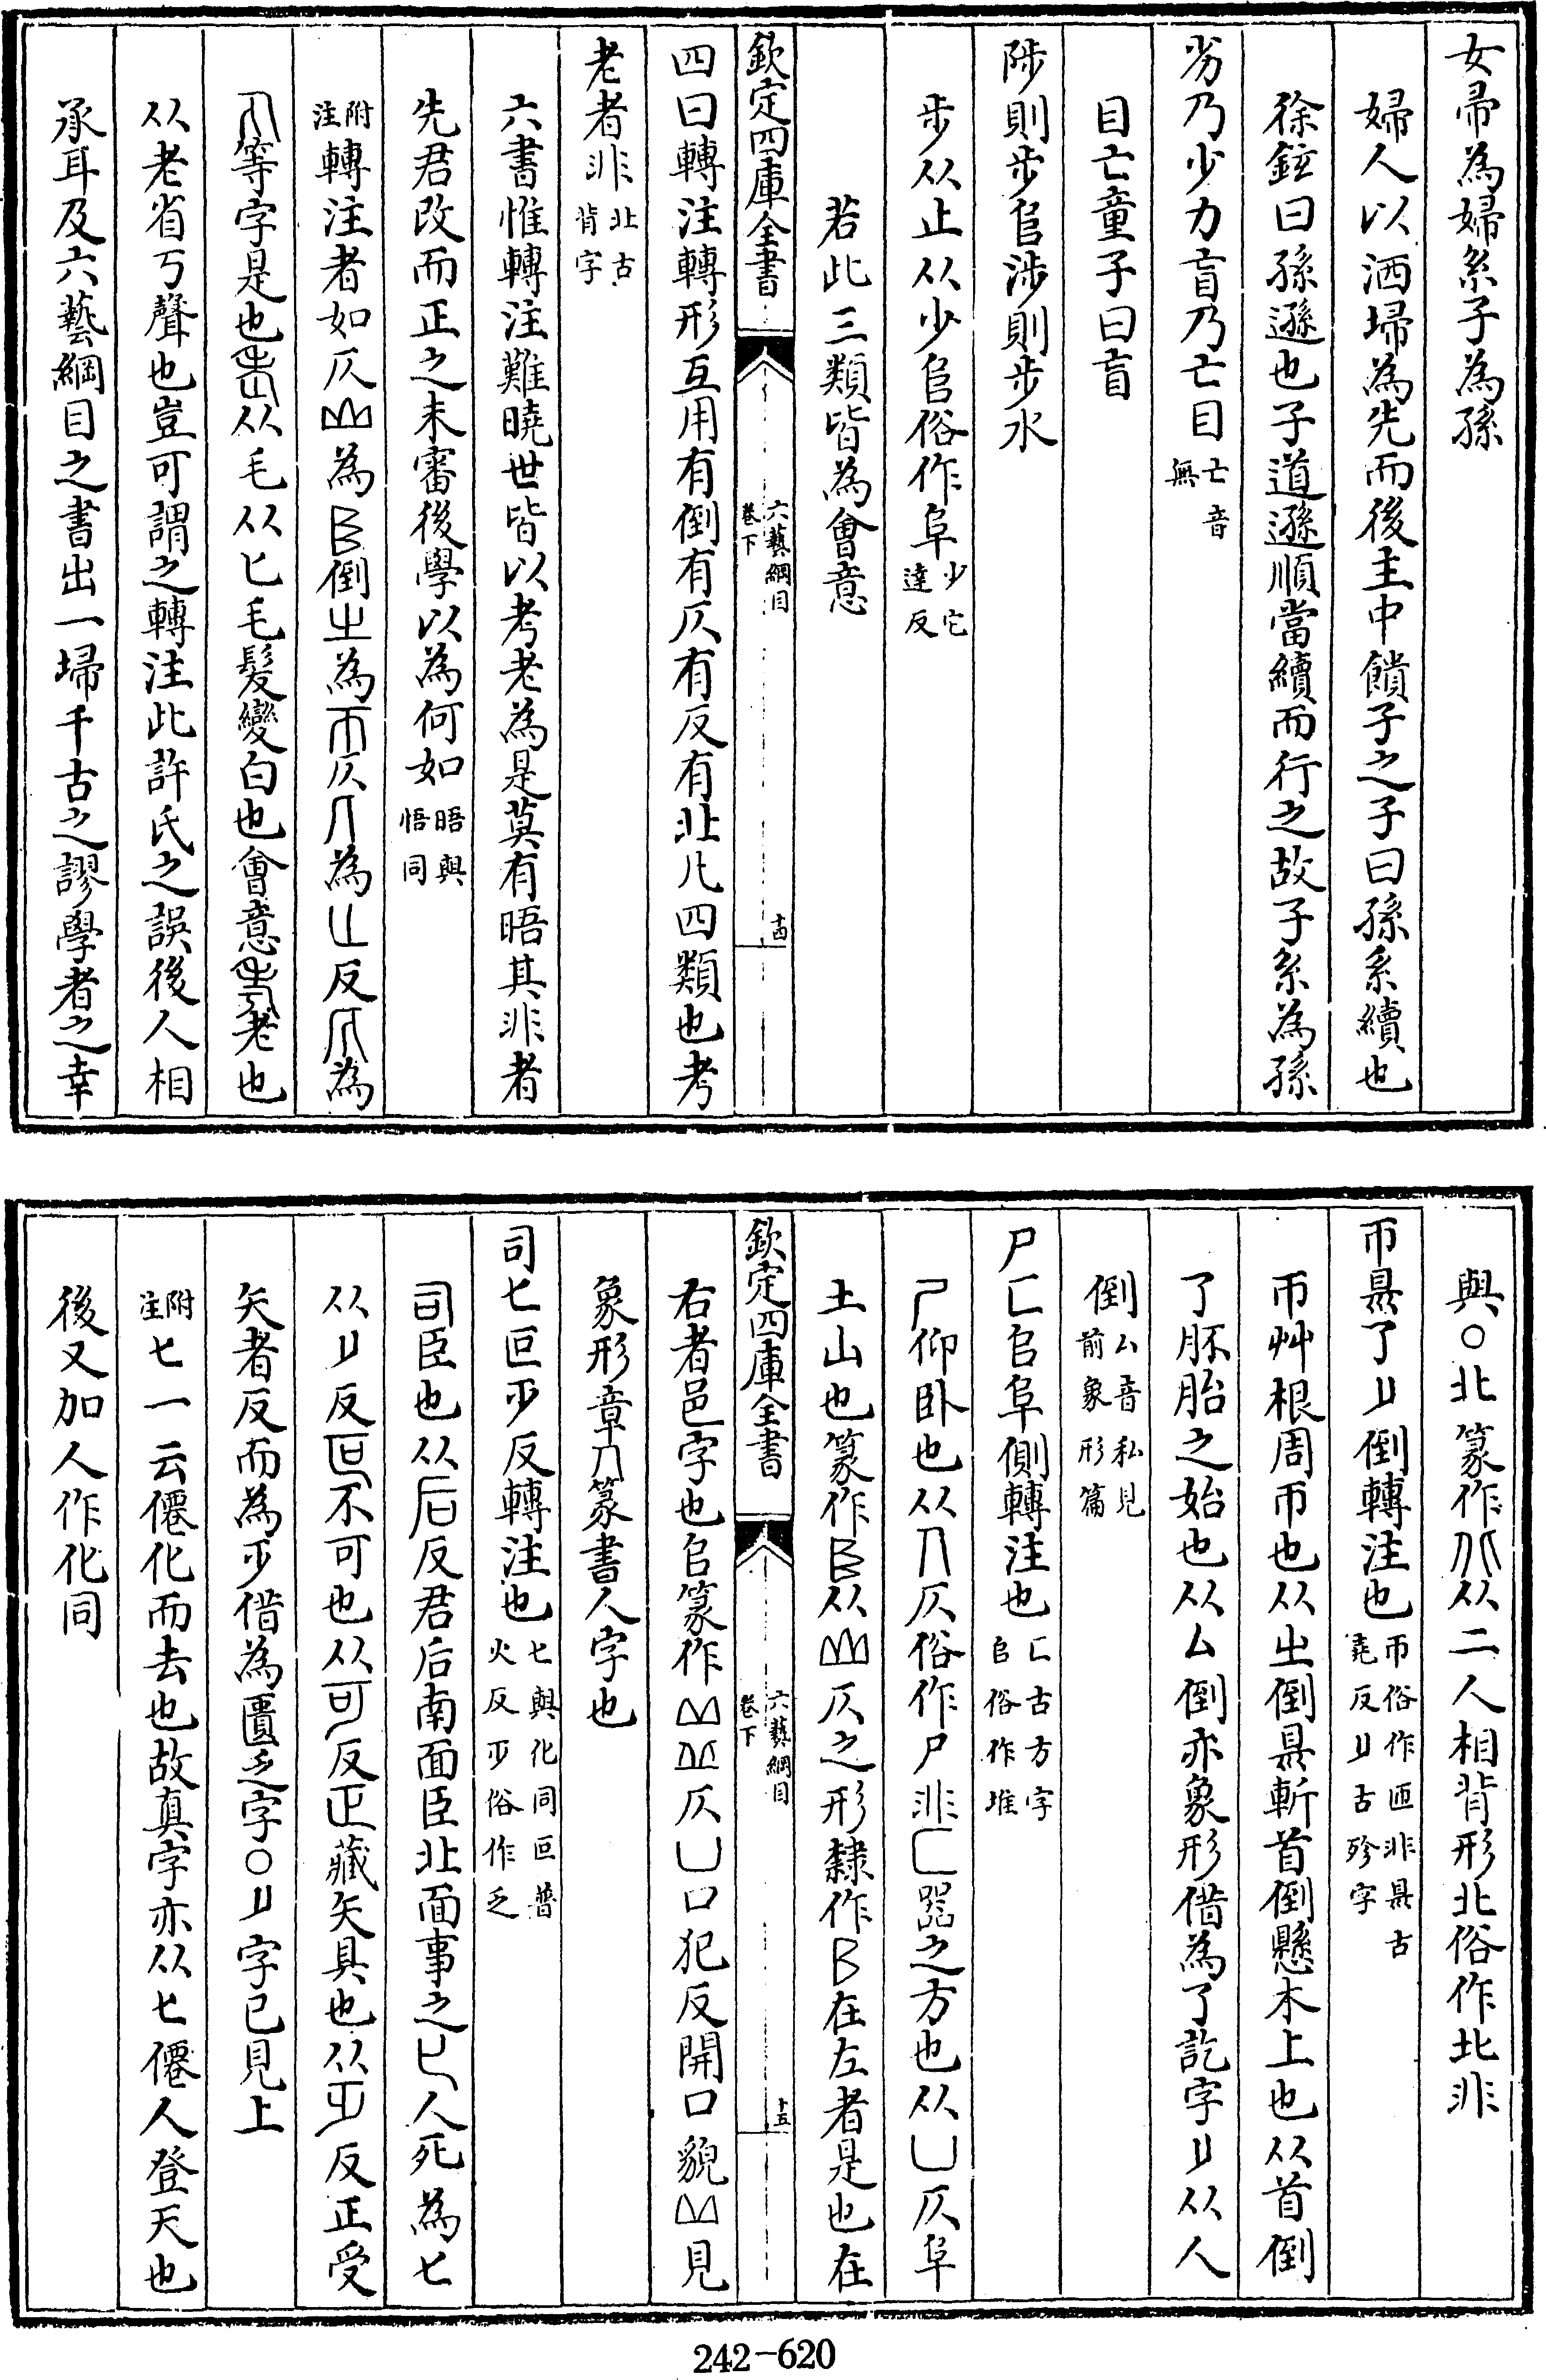 女帚為婦糸子為孫
婦人以洒埽為先而後主中饋子之子曰孫系續也
徐鉉曰孫遜也子道遜順當續而行之故子糸為孫
劣乃少力盲乃亡目亡音無
目亡童子曰盲
陟則步𠂤涉則步水
步从止从少𠂤俗作阜少它達反
若此三類皆為會意
欽定四庫全書 六藝綱目卷下 十四
四曰轉注轉形互用有倒有仄有反有北凡四類也考
老者非北古背字
六書惟轉注難曉世皆以考老為是莫有晤其非者
先君改而正之未審後學以為何如晤與悟同
附注轉注者如仄山為𠂤倒㞢為帀仄人為匕反爪為
等字是也老从毛从匕毛髮變白也會意考老也
从老省丂聲也豈可謂之轉注此許氏之誤後人相
承耳及六藝綱目之書出一埽千古之謬學者之幸
與○北篆作从二人相背形北俗作北非
帀𥄉了倒轉注也帀俗作匝非𥄉古堯反古殄字
帀艸根周帀也从㞢倒𥄉斬首倒懸木上也从首倒
了胚胎之始也从厶倒亦象形借為了訖字从人
倒厶音私見前象形篇
尸匚𠂤阜側轉注也匚古方字𠂤俗作堆
尸仰卧也从人仄俗作尸非匚器之方也从凵仄阜
土山也篆作𠂤从山仄之形隸作阝在左者是也在
欽定四庫全書 六藝綱目卷下 十五
右者邑字也𠂤篆作仄凵口犯反開口貌見
象形章人篆書人字也
司𠤎叵反轉注也𠤎與化同叵普火反俗作乏
司臣也从后反君后南面臣北面事之𠤎人死為𠤎
从反叵不可也从可反正藏矢具也从反正受
矢者反而為借為匱乏字○字已見上
附注𠤎一云僊化而去也故真字亦从𠤎僊人登天也
後又加人作化同
242-620